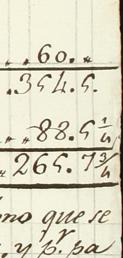 ,, 60. ,,
.354.5.
,, ,, 88.5 1/4
,, 265.7 3/4
mo que se
, y pr. pa